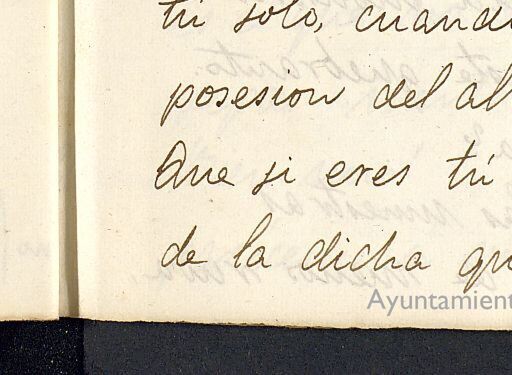 tú solo, cuand
posesion del al
Que si eres tú
de la dicha qu
Ayuntamient